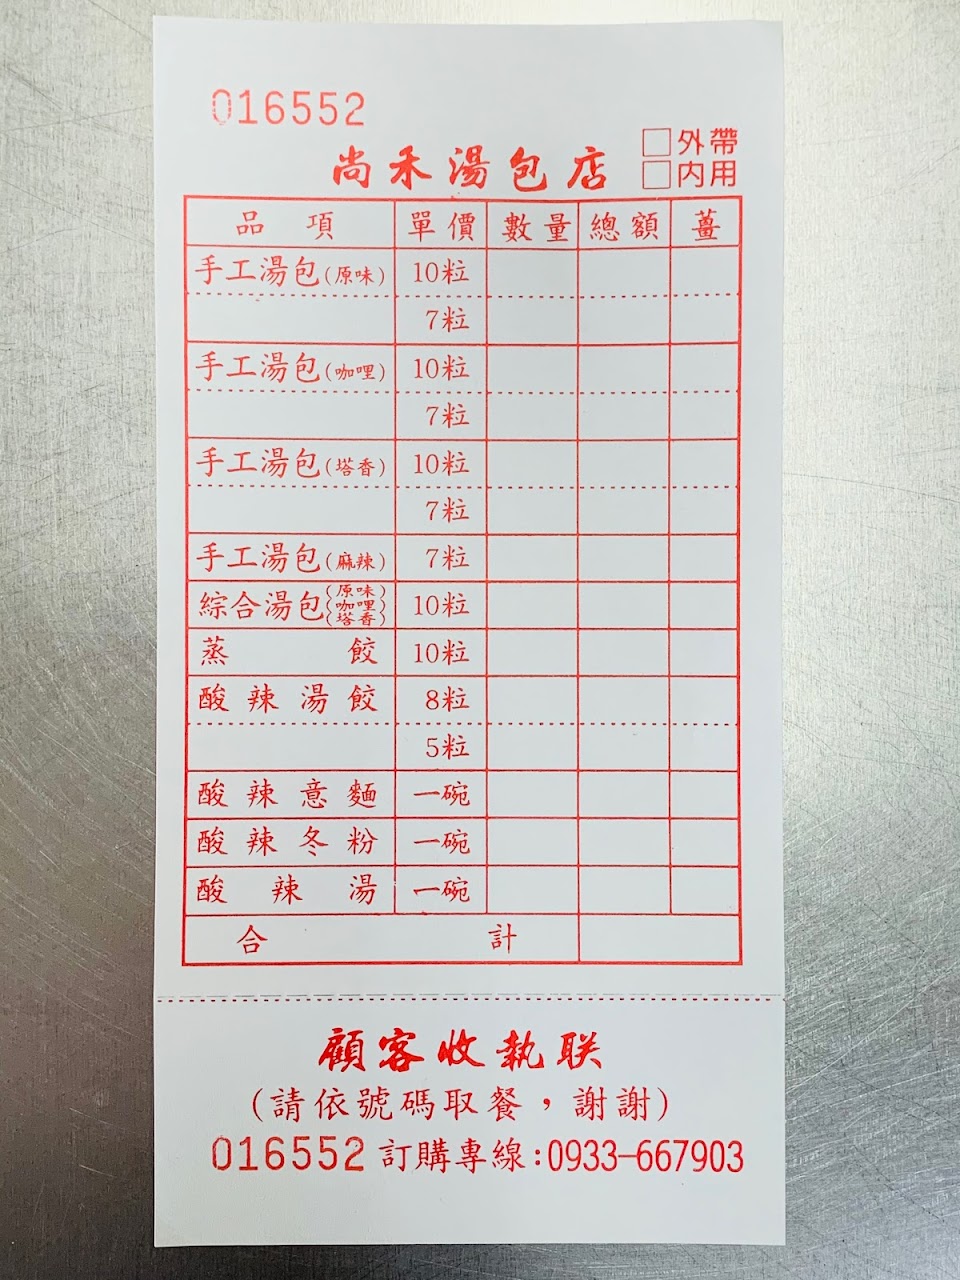 016552
□外帶
尚禾湯包店 □內用
品項 單價 數量 總額 薑
手工湯包(原味) 10粒
7粒
手工湯包(咖哩) 10粒
7粒
手工湯包(塔香) 10粒
7粒
手工湯包(麻辣) 7粒
綜合湯包(原味)(咖哩)(塔香) 10粒
蒸餃 10粒
酸辣湯餃 8粒
5粒
酸辣意麵 一碗
酸辣冬粉 一碗
酸辣湯 一碗
合計
顧客收執联
(請依號碼取餐，謝謝)
016552 訂購專線:0933-667903